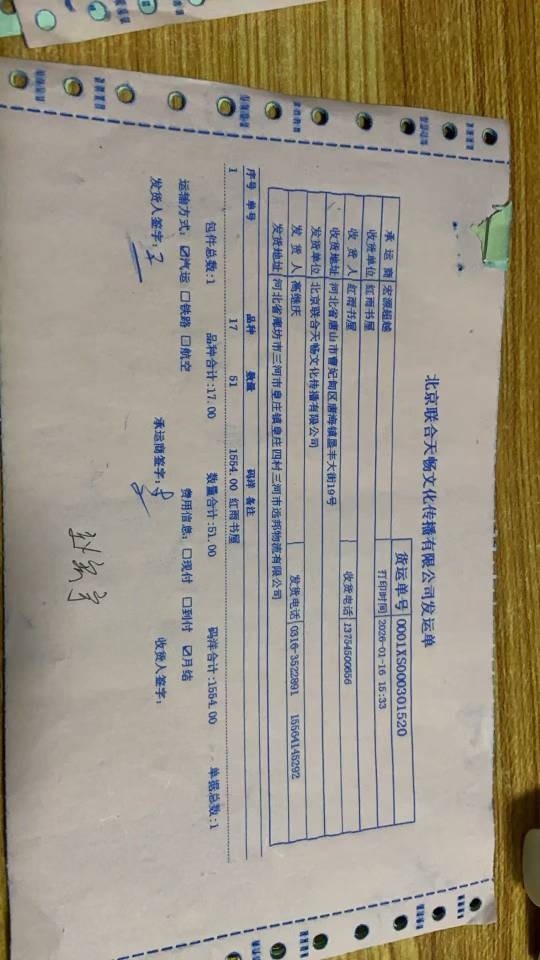 北京联合天畅文化传播有限公司发运单
货运单号 0001XS000301520
承运商 宏源超越 打印时间 2026-01-16 15:33
收货单位 红雨书屋
收货人 红雨书屋 收货电话 13754500656
收货地址 河北省唐山市曹妃甸区唐海镇垦丰大街19号
发货单位 北京联合天畅文化传播有限公司
发货人 高继庆 发货电话 0316-3522891 15564145292
发货地址 河北省廊坊市三河市皇庄镇皇庄四村三河市远邦物流有限公司
序号 单号 品种 数量 码洋 备注
1 17 51 1554.00 红雨书屋
包件总数:1 品种合计:17.00 数量合计:51.00 码洋合计:1554.00 单据总数:1
运输方式: ☑汽运 □铁路 □航空 费用信息: □现付 □到付 ☑月结
发货人签字: 承运商签字: 收货人签字: